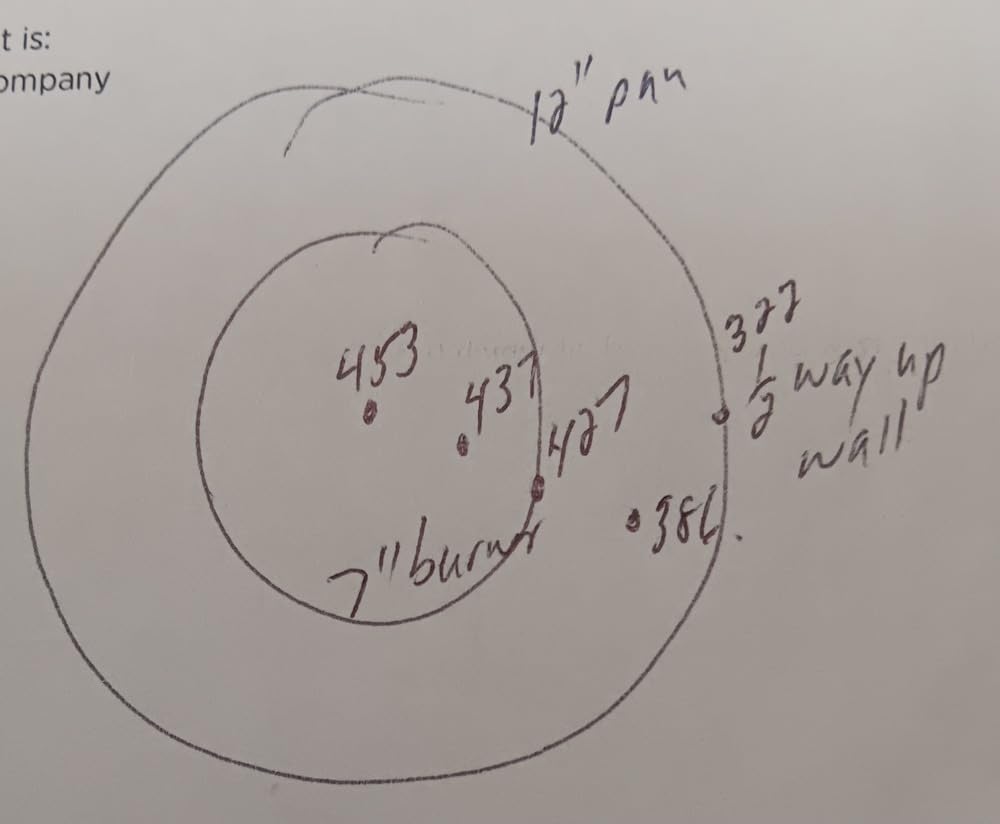 t is:
ompany
12" pan
322
1/2 way up
wall
453
437
427
386.
7" burner